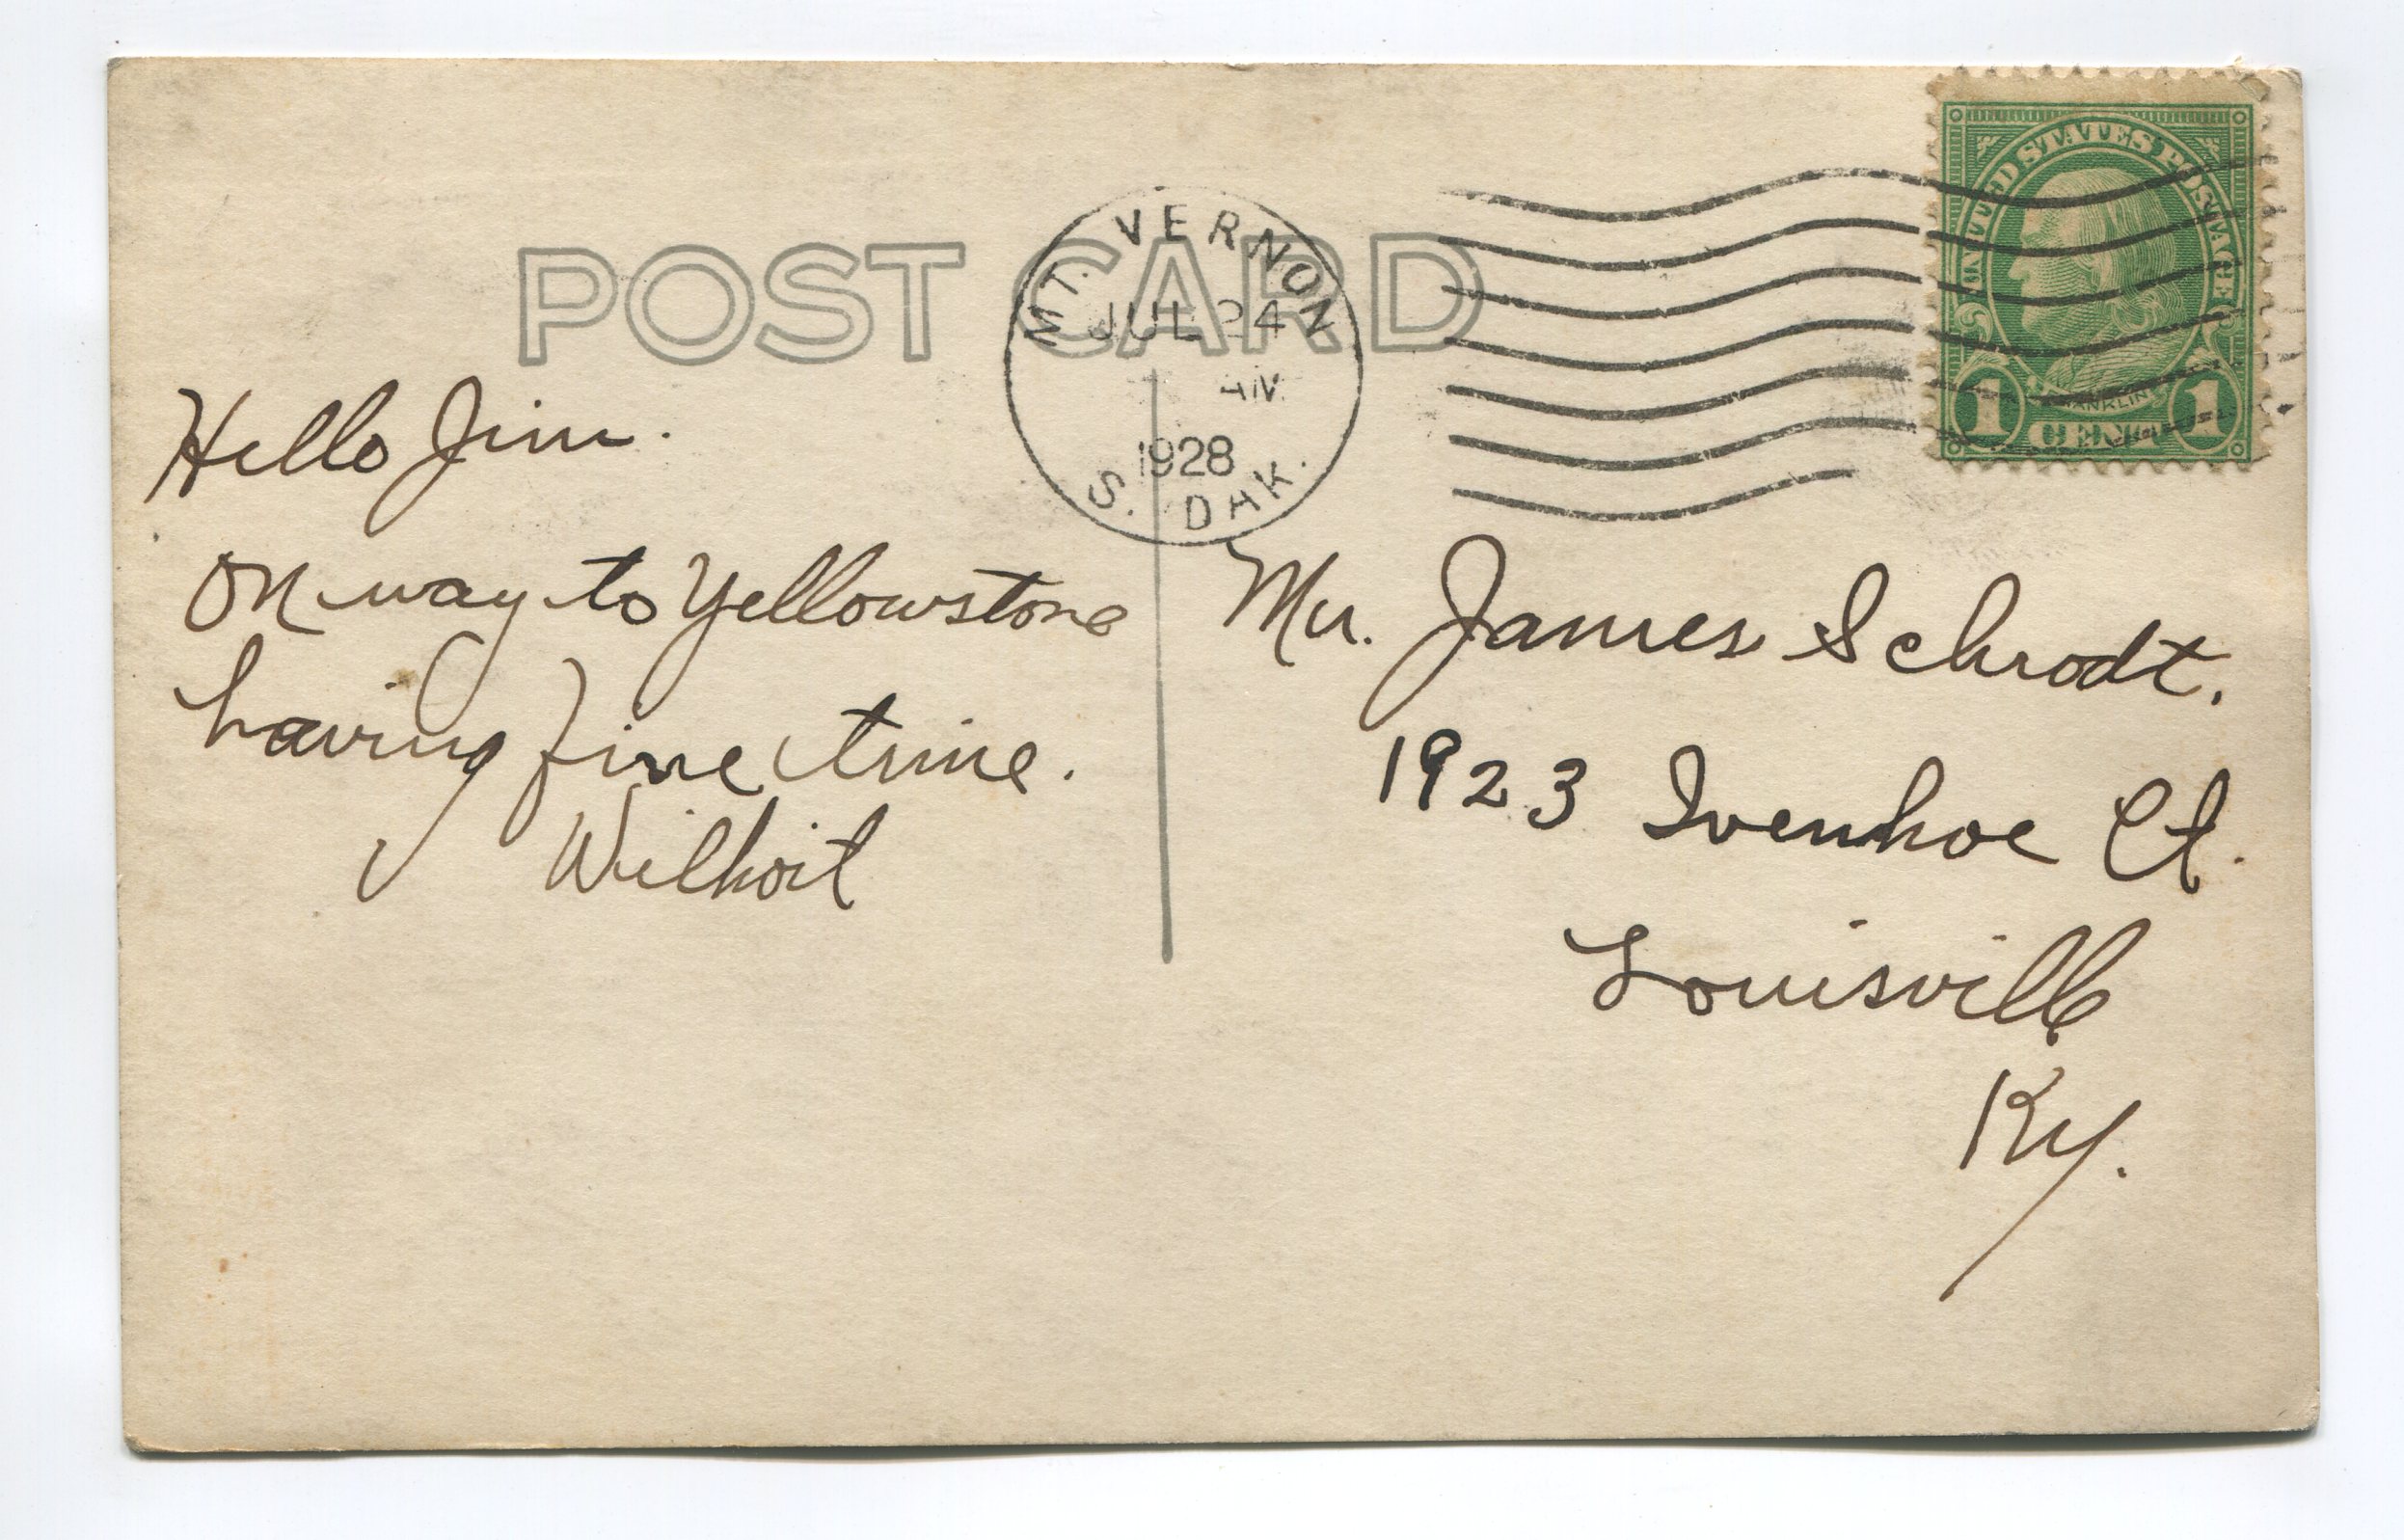 POST CARD
MT. VERNON
JUL 24
AM
1928
S. DAK.
UNITED STATES POSTAGE
FRANKLIN
1 CENT 1
Hello Jim.
On way to Yellowstone
having fine time.
Wilhoit
Mr. James Schrodt.
1923 Ivenhoe Ct.
Louisville
Ky.